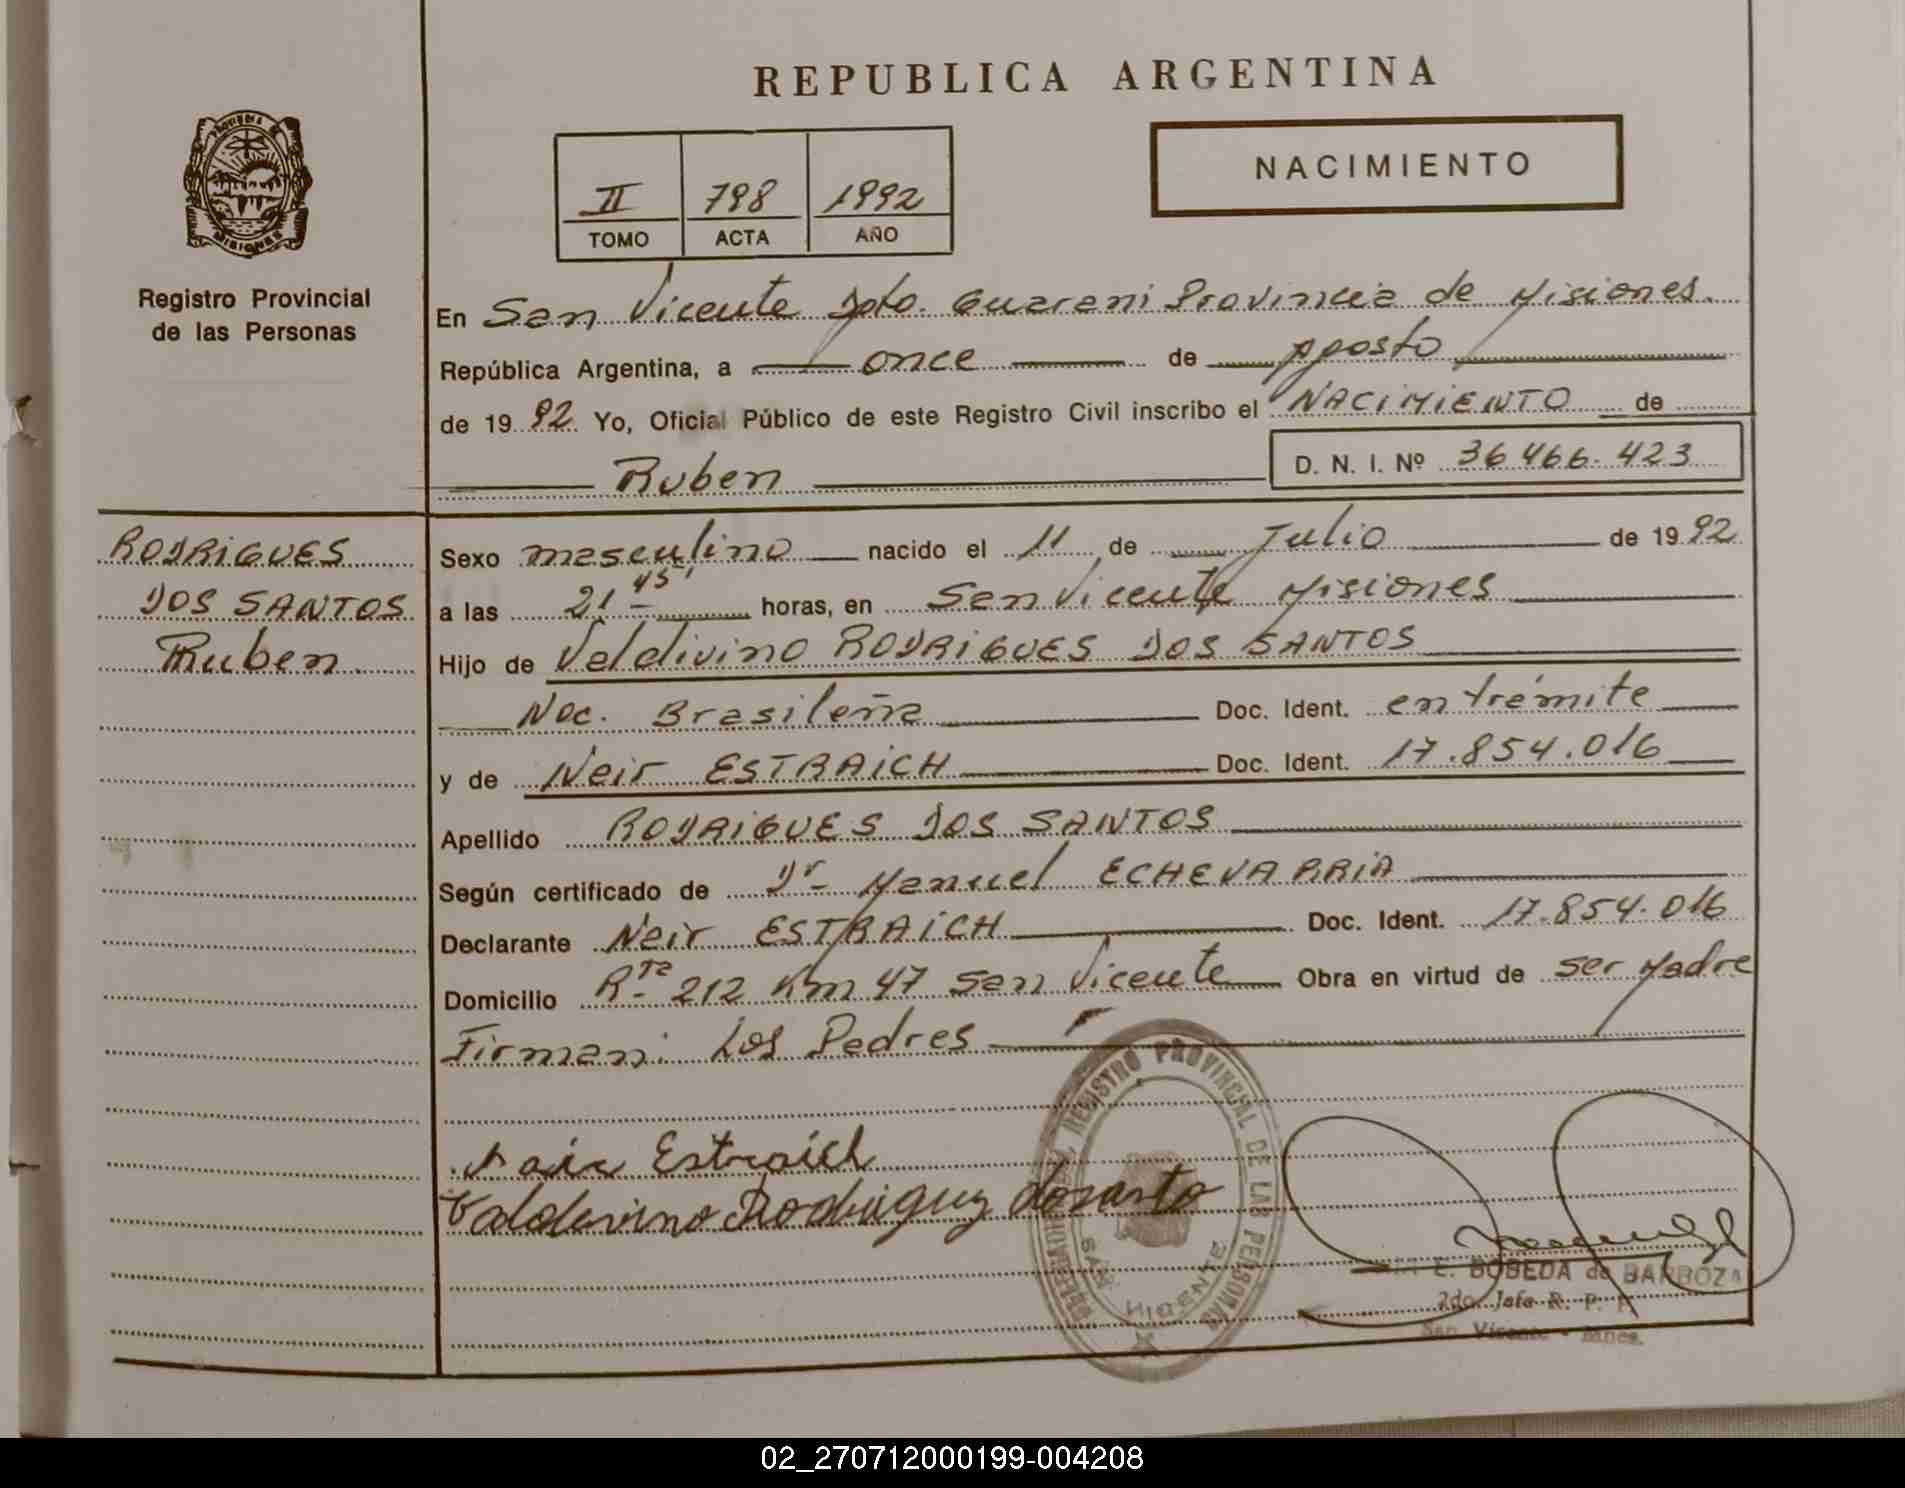 REPUBLICA ARGENTINA
PROVINCIA DE
MISIONES
Registro Provincial
de las Personas
II 798 1992
TOMO ACTA AÑO
NACIMIENTO
En San Vicente Dpto. Guarani Provincia de Misiones.
República Argentina, a once de Agosto
de 19 92 Yo, Oficial Público de este Registro Civil inscribo el NACIMIENTO de
Ruben D. N. I. Nº 36 466. 423
RODRIGUES
DOS SANTOS
Ruben.
Sexo masculino nacido el 11 de Julio de 19 92
a las 21 45' horas, en San Vicente Misiones
Hijo de Valdivino RODRIGUES DOS SANTOS
Nac. Brasileña Doc. Ident. en trámite
y de Neir ESTRAICH Doc. Ident. 17.854.016
Apellido RODRIGUES DOS SANTOS
Según certificado de Dr Manuel ECHEVARRIA
Declarante Neir ESTRAICH Doc. Ident. 17.854.016
Domicilio Rta 212 Km 47 San Vicente Obra en virtud de ser Madre
Firman: Los Padres
Estraich
Valdevino Rodriguez dosanto
REGISTRO PROVINCIAL DE LAS PERSONAS
SAN VICENTE
E. BOBEDA de BARBOZA
2do. Jefe R. P. P.
San Vicente - Mnes.
02_270712000199-004208